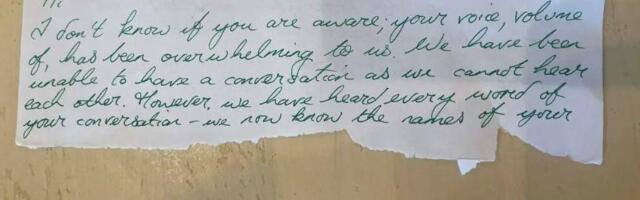 Hi
I don't know if you are aware; your voice, volume
of, has been overwhelming to us. We have been
unable to have a conversation as we cannot hear
each other. However, we have heard every word of
your conversation – we now know the names of your